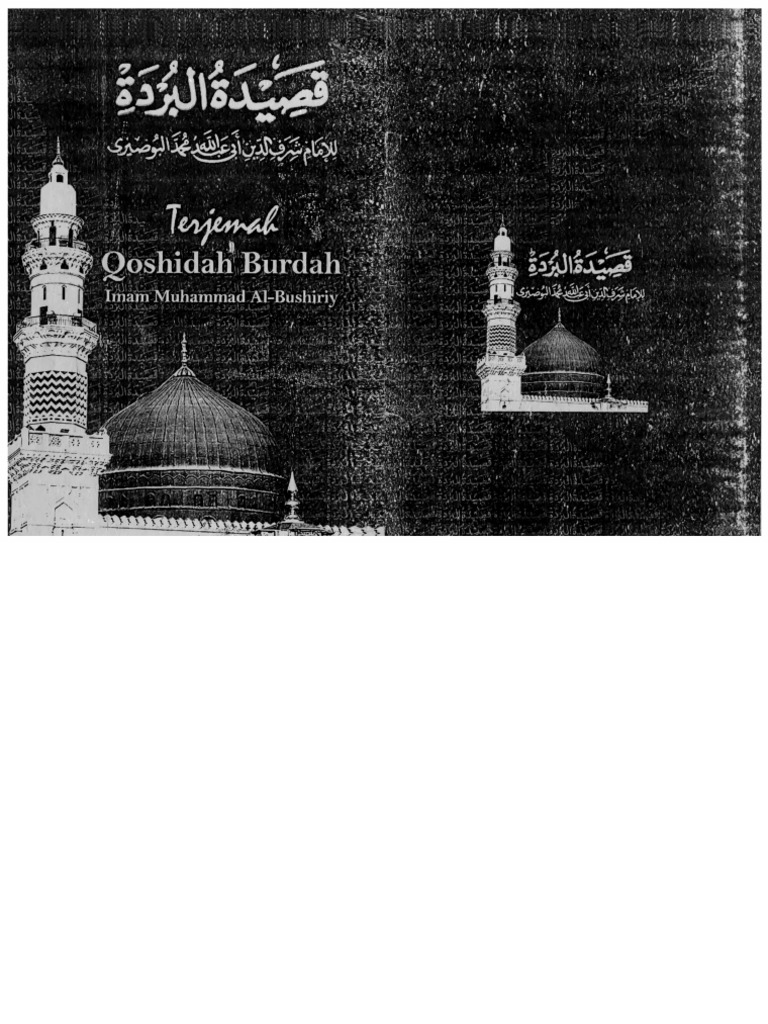 قَصِيْدَةُ الْبُرْدَةِ
للإمام شرف الدين أبي عبد الله محمد البوصيري
Terjemah
Qoshidah Burdah
Imam Muhammad Al-Bushiriy
قَصِيْدَةُ الْبُرْدَةِ
للإمام شرف الدين أبي عبد الله محمد البوصيري